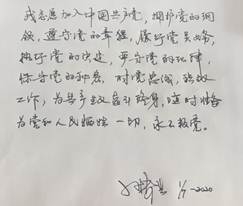 我志愿加入中国共产党，拥护党的纲
领，遵守党的章程，履行党员义务，
执行党的决定，严守党的纪律，
保守党的秘密，对党忠诚，积极
工作，为共产主义奋斗终身，随时准备
为党和人民牺牲一切，永不叛党。
1/7-2020